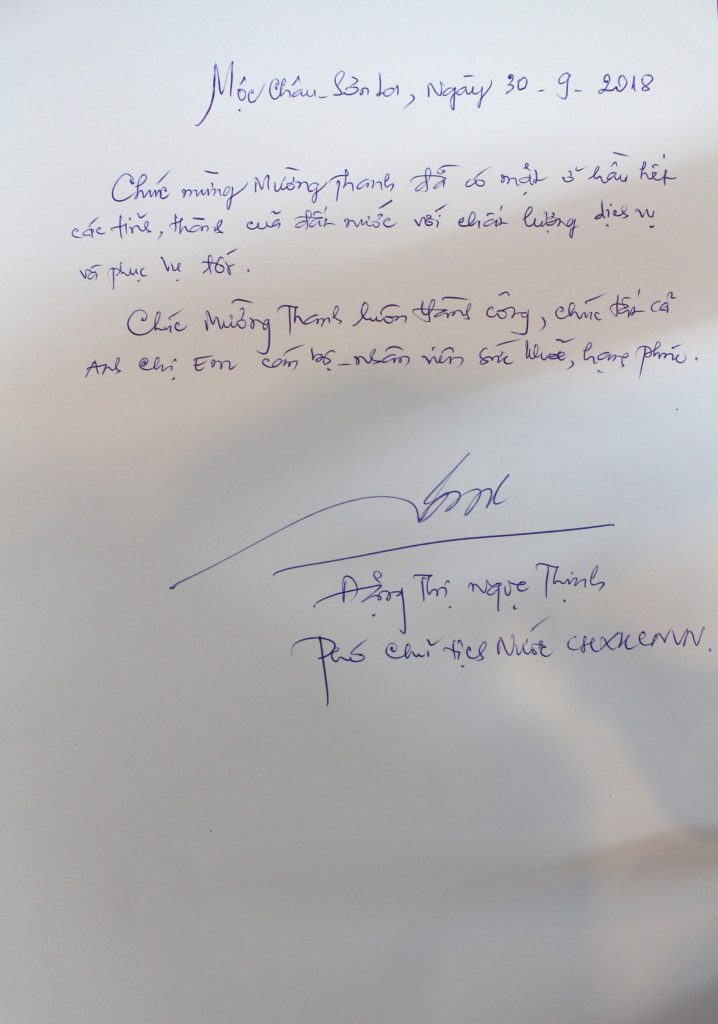 Mộc Châu - Sơn La, Ngày 30 - 9 - 2018
Chúc mừng Mường Thanh đã có mặt ở hầu hết
các tỉnh, thành của đất nước với chất lượng dịch vụ
và phục vụ tốt.
Chúc Mường Thanh luôn thành công, chúc tất cả
Anh Chị Em cán bộ - nhân viên sức khoẻ, hạnh phúc.
Đặng Thị Ngọc Thịnh
Phó Chủ tịch Nước CHXHCNVN.